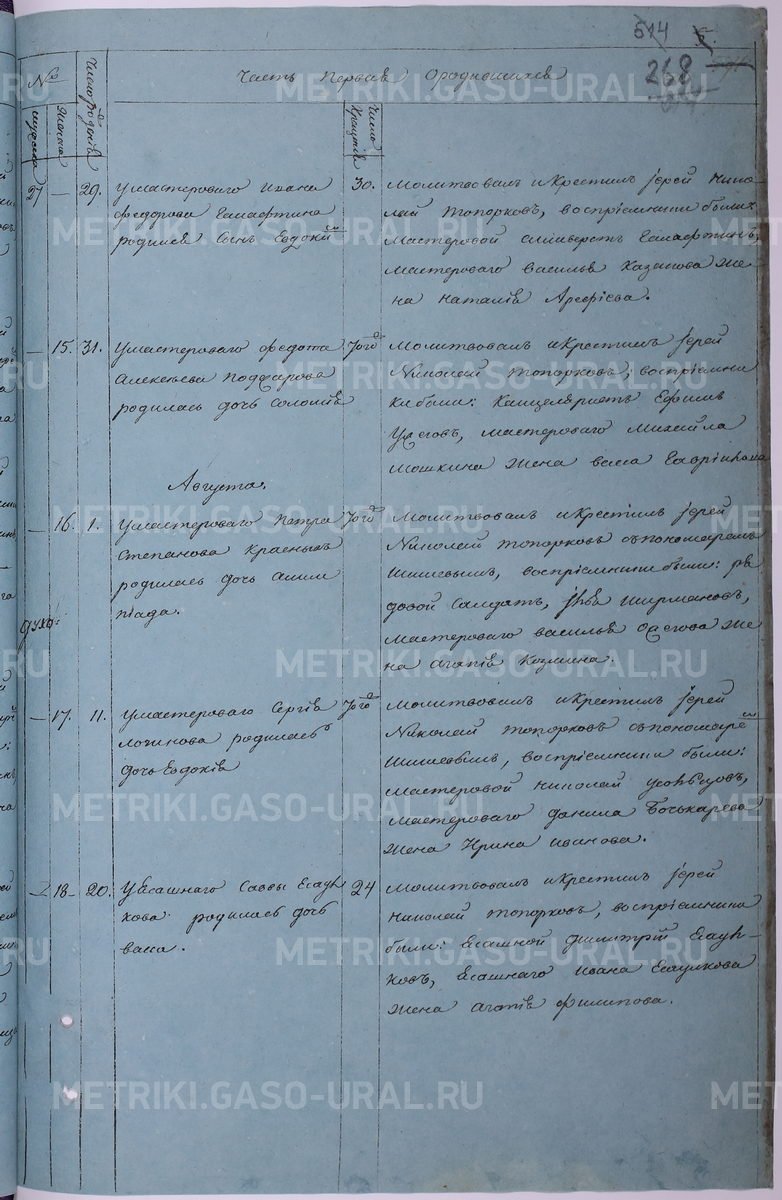 514
268
№
мужеска
женска
Число рождѣнія
Часть первая Ородившихся
Число крещенія
27 — 29. Умастероваго Ивана
Федорова
родился сынъ Евдокимъ
30. Молитвовалъ икрестилъ іерей Нико-
лай Топорковъ, воспріемники были:
Мастеровой
мастероваго Василья Казакова же-
на Наталія Арефіева.
— 15. 31. Умастероваго Федота
Алексѣева
родилась дочь Соломія
Того
Молитвовалъ икрестилъ іерей
Николай Топорковъ, воспріемни-
ки были: Канцеляристъ Ефимъ
мастероваго Михайла
Мошкина жена Васса Гаврилова
Августа.
— 16. 1. Умастероваго Петра
Степанова Красныхъ
родилась дочь Олим-
піада.
Того
Молитвовалъ икрестилъ іерей
Николай Топорковъ съпономаремъ
Шишевымъ, воспріемники были:
довой Салдатъ,
мастероваго Василья же-
на Агапія Козмина.
— 17. 11. Умастероваго Сергія
Логинова родилась
дочь Евдокія
Того
Молитвовалъ икрестилъ іерей
Николай Топорковъ съпономаремъ
Шишевымъ, воспріемники были:
мастеровой Николай
мастероваго Данила Бочкарева
жена Ирина Иванова.
— 18 — 20. Уясашнаго Саввы Есаул-
кова родилась дочь
Васса.
24
Молитвовалъ икрестилъ іерей
Николай Топорковъ, воспріемники
были: ясашной Димитрій Есаул-
ковъ, ясашнаго Ивана Есаулкова
жена Агапія Филипова.
METRIKI.GASO-URAL.RU